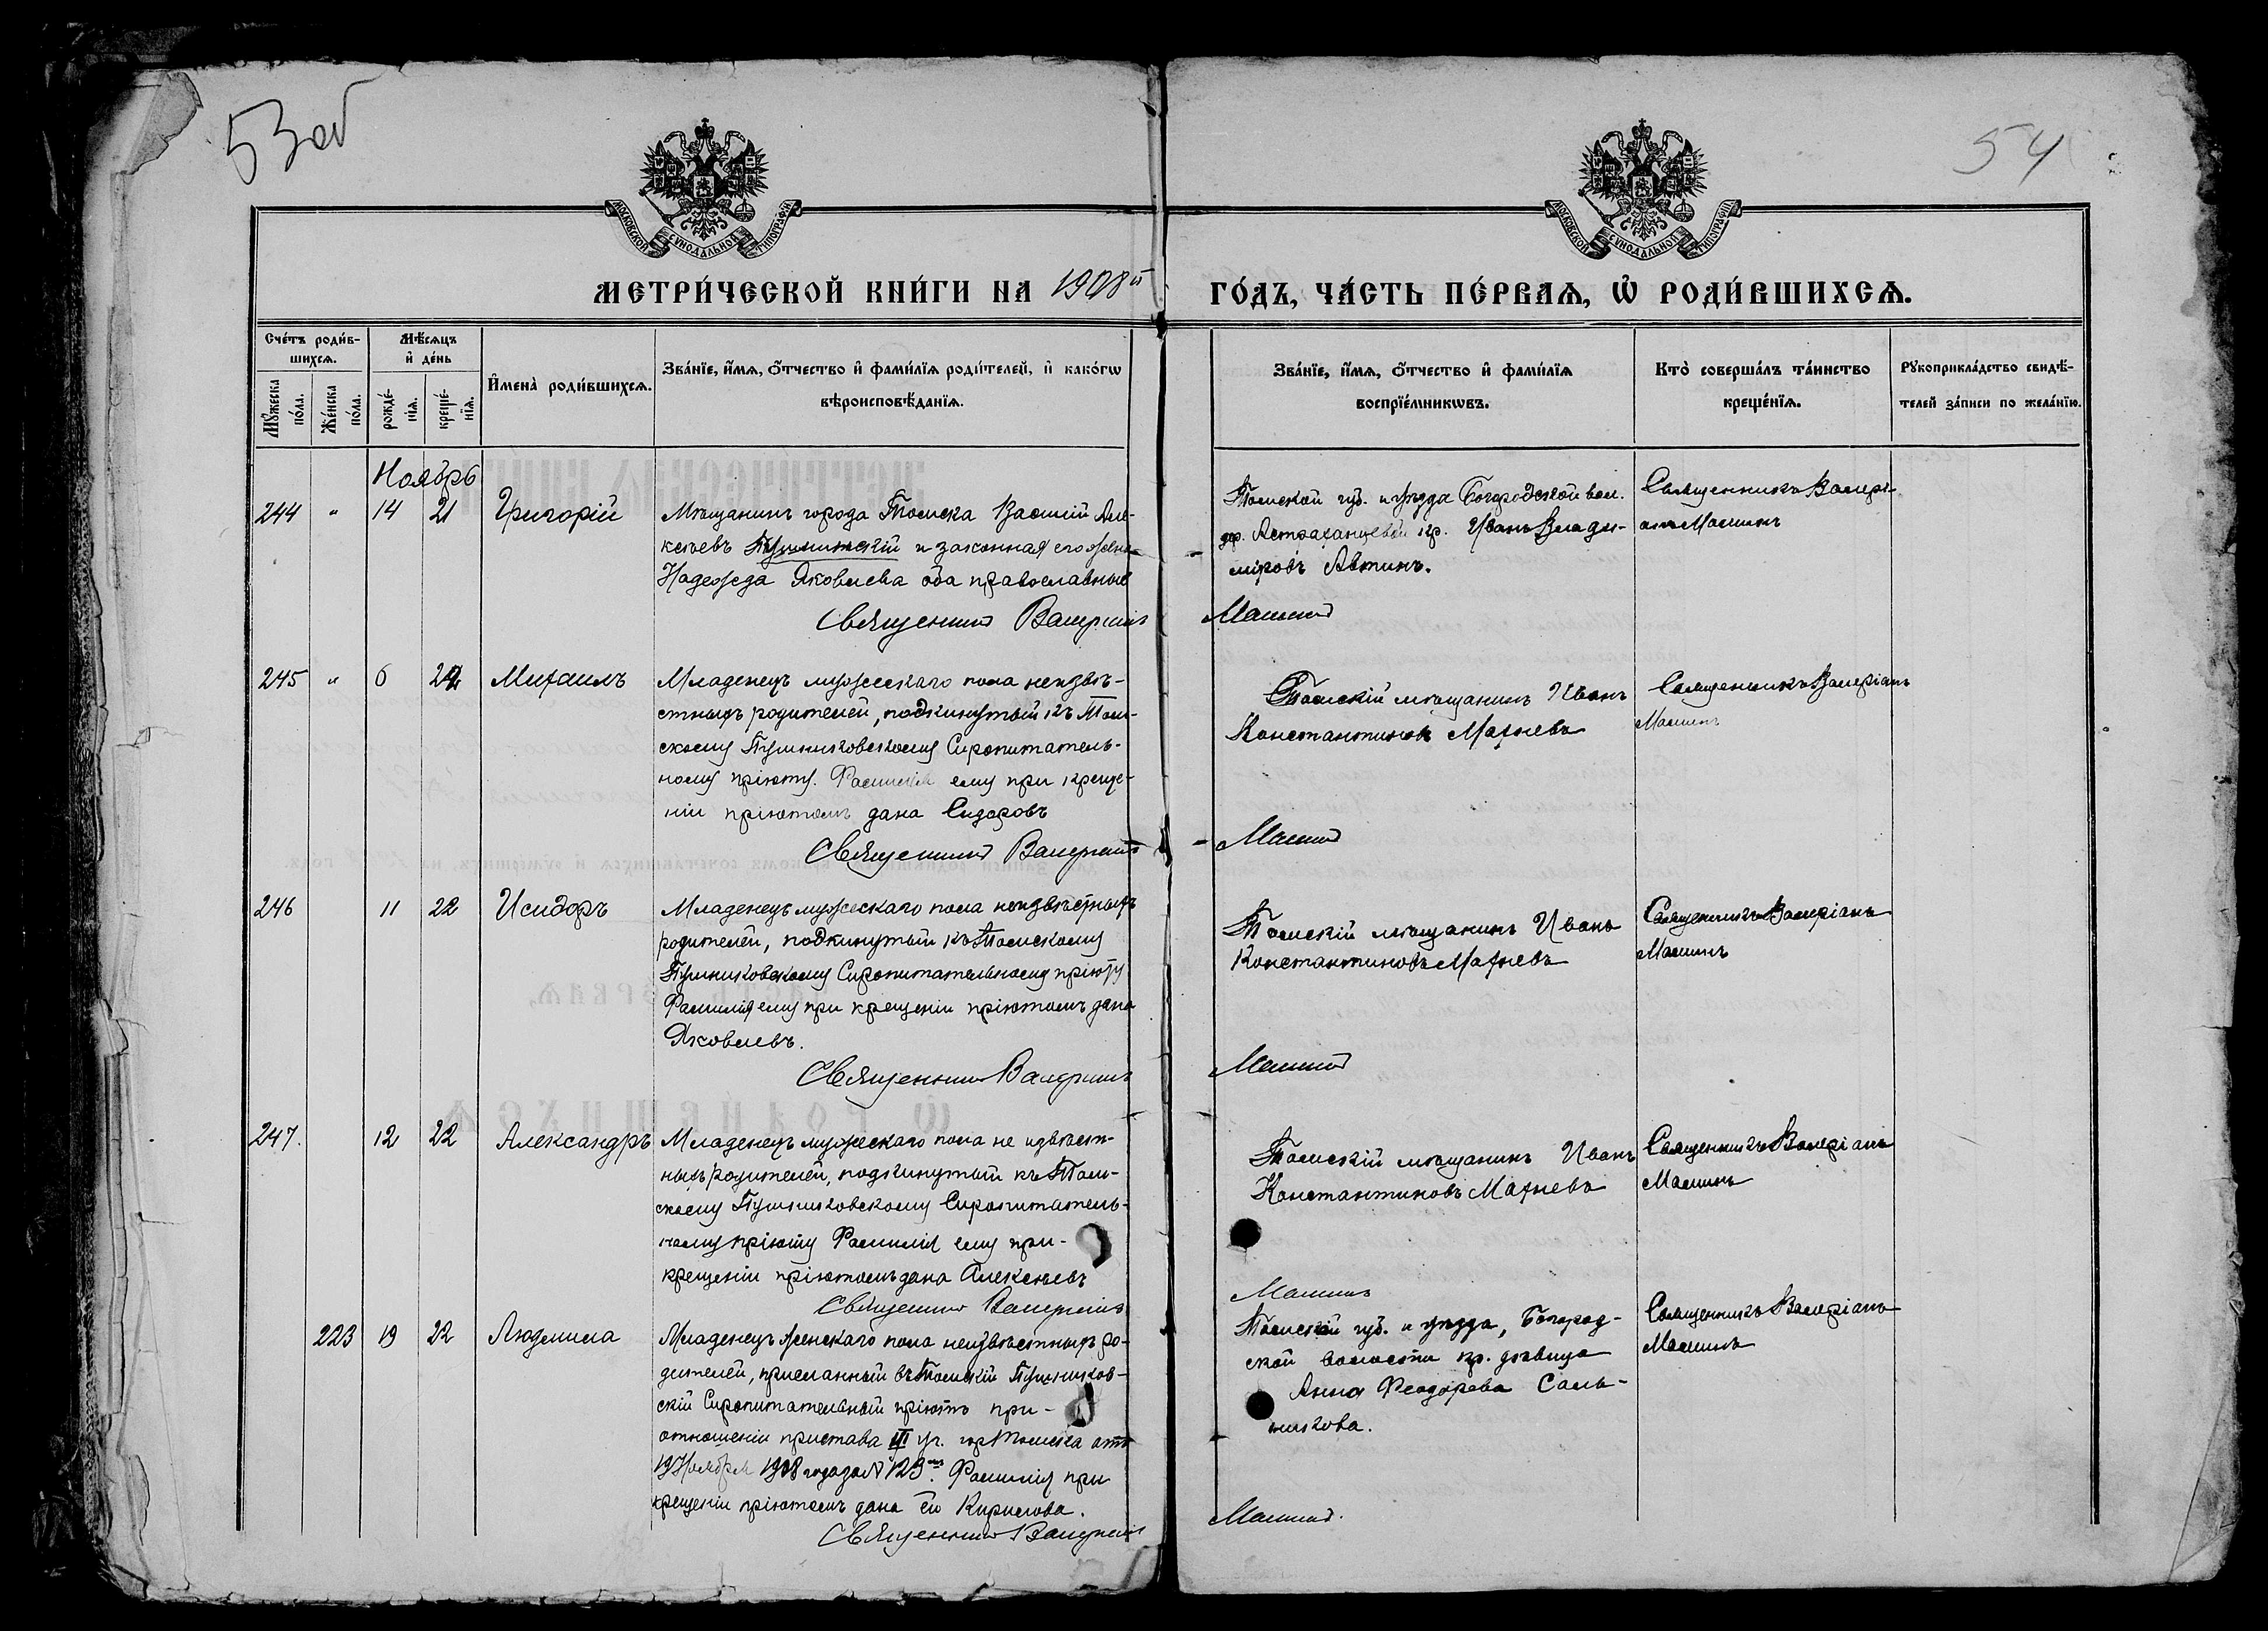 53 об
54
МОСКОВСКОЙ СѴНОДАЛЬНОЙ ТИПОГРАФІИ
МОСКОВСКОЙ СѴНОДАЛЬНОЙ ТИПОГРАФІИ
МЕТРИ́ЧЕСКОЙ КНИ́ГИ НА 1908й
ГО́ДЪ, ЧА́СТЬ ПЕ́РВАѦ, Ѡ РОДИ́ВШИХСѦ.
Сче́тъ роди́в-
шихсѧ.
Мѣ́сѧцъ
и де́нь
Мꙋ́жеска
по́ла.
Же́нска
по́ла.
рожде́-
нїѧ.
креще́-
нїѧ.
Имена̀ роди́вшихсѧ.
Зва́нїе, и́мѧ, ѻ҆́тчество и фами́лїѧ роди́телей, и како́гѡ
вѣроисповѣ́данїѧ.
Зва́нїе, и́мѧ, ѻ҆́тчество и фами́лїѧ
воспрїе́мникѡвъ.
Кто̀ соверша́лъ та́инство
креще́нїѧ.
Рꙋкоприкла́дство свидѣ́-
телей за́писи по жела́нїю.
Ноябрь
244 " 14 21 Григорій
Мѣщанинъ города Томска Василій Але-
ксѣевъ и законная его жена
Надежда Яковлева оба православные
Священникъ Валеріанъ Машинъ
Томской губ. и уѣзда Богородской вол.
дер. Астраханцевой кр. Иванъ Влади-
міровъ Автинъ.
Священникъ Валері-
анъ Машинъ
245 " 6 22 Михаилъ
Младенецъ мужескаго пола неизвѣ-
стныхъ родителей, подкинутый къ Том-
скому Пушниковскому Сиропитатель-
ному пріюту. Фамилія ему при креще-
ніи пріютомъ дана Сидоровъ
Священникъ Валеріанъ Машинъ
Томскій мѣщанинъ Иванъ
Константиновъ Махневъ
Священникъ Валеріанъ
Машинъ
246 11 22 Исидоръ
Младенецъ мужескаго пола неизвѣстныхъ
родителей, подкинутый къ Томскому
Пушниковскому Сиропитательному пріюту
Фамилія ему при крещеніи пріютомъ дана
Яковлевъ.
Священникъ Валеріанъ Машинъ
Томскій мѣщанинъ Иванъ
Константиновъ Махневъ
Священникъ Валеріанъ
Машинъ
247. 12 22 Александръ
Младенецъ мужескаго пола не извѣст-
ныхъ родителей, подкинутый къ Том-
скому Пушниковскому Сиропитатель-
ному пріюту Фамилія ему при-
крещеніи пріютомъ дана Алексѣевъ
Священникъ Валеріанъ Машинъ
Томскій мѣщанинъ Иванъ
Константиновъ Махневъ
Священникъ Валеріанъ
Машинъ
223 19 22 Людмила
Младенецъ женскаго пола неизвѣстныхъ ро-
дителей, присланный въ Томскій Пушников-
скій Сиропитательный пріютъ при-
отношеніи пристава III уч. гор Томска отъ
19 Ноября 1908 года за № 123. Фамилія при
крещеніи пріютомъ дана ей Кирилова.
Священникъ Валеріанъ Машинъ.
Томской губ. и уѣзда, Богород-
ской волости кр. дѣвица
Анна Феодорова Саль-
никова.
Священникъ Валеріанъ
Машинъ